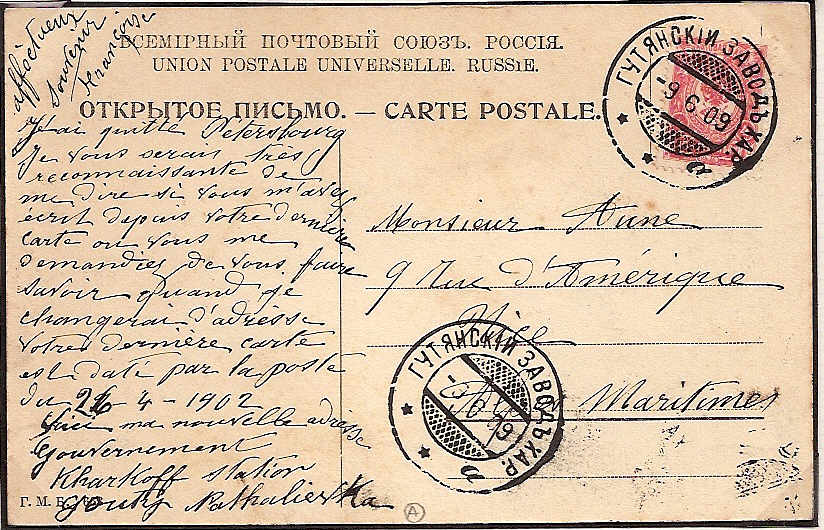 affectueux
souvenir
Française
ВСЕМІРНЫЙ ПОЧТОВЫЙ СОЮЗЪ. РОССІЯ.
UNION POSTALE UNIVERSELLE. RUSSIE.
ОТКРЫТОЕ ПИСЬМО. — CARTE POSTALE.
J'ai quitté Petersbourg
Je vous serais très
reconnaissante de
me dire si vous m'avez
écrit depuis votre dernière
carte ou vous me
demandiez de vous faire
savoir quand je
changerai d'adresse
Votre dernière carte
est daté par la poste
du 26-4-1902
Ici ma nouvelle adresse
Gouvernement
Kharkoff station
Gouty Nathalievka
Monsieur Aune
9 Rue d'Amérique
Nice
Maritimes
ГУТЯНСКІЙ ЗАВОДЪ ХАР.
-9 6 09
а
ГУТЯНСКІЙ ЗАВОДЪ ХАР.
а
Г. М. Б.
A